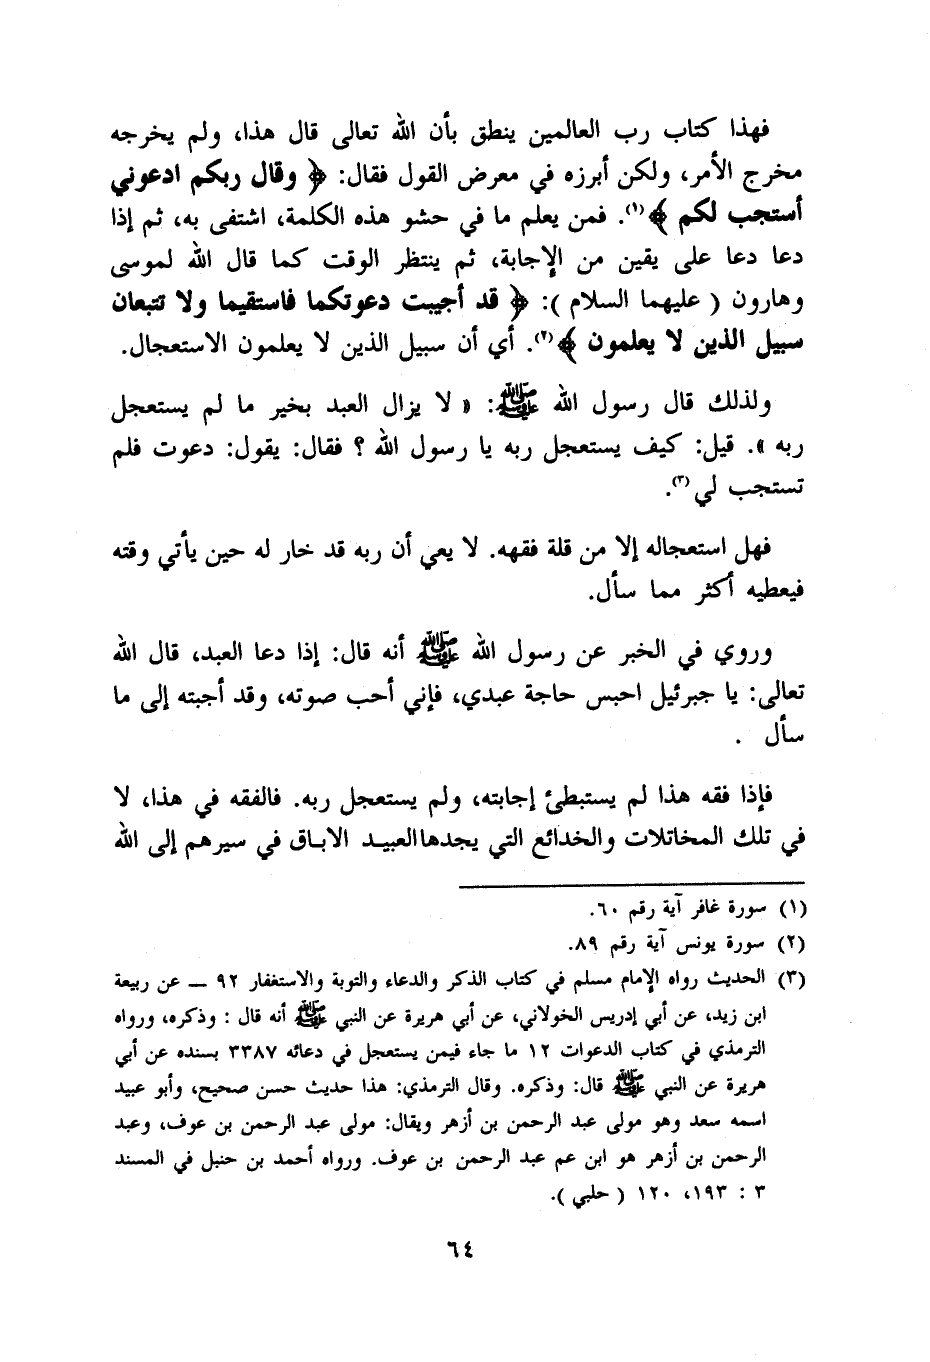 فهذا كتاب رب العالمين ينطق بأن الله تعالى قال هذا، ولم يخرجه
مخرج الأمر، ولكن أبرزه في معرض القول فقال: ﴿ وقال ربكم ادعوني
أستجب لكم ﴾(١). فمن يعلم ما في حشو هذه الكلمة، اشتفى به، ثم إذا
دعا دعا على يقين من الإجابة، ثم ينتظر الوقت كما قال الله لموسى
وهارون ( عليهما السلام ): ﴿ قد أجيبت دعوتكما فاستقيما ولا تتبعان
سبيل الذين لا يعلمون ﴾(٢). أي أن سبيل الذين لا يعلمون الاستعجال.
ولذلك قال رسول الله ﷺ: « لا يزال العبد بخير ما لم يستعجل
ربه ». قيل: كيف يستعجل ربه يا رسول الله ؟ فقال: يقول: دعوت فلم
تستجب لي(٣).
فهل استعجاله إلا من قلة فقهه. لا يعي أن ربه قد خار له حين يأتي وقته
فيعطيه أكثر مما سأل.
وروي في الخبر عن رسول الله ﷺ أنه قال: إذا دعا العبد، قال الله
تعالى: يا جبرئيل احبس حاجة عبدي، فإني أحب صوته، وقد أجبته إلى ما
سأل .
فإذا فقه هذا لم يستبطئ إجابته، ولم يستعجل ربه. فالفقه في هذا، لا
في تلك المخاتلات والخدائع التي يجدها العبيد الاباق في سيرهم إلى الله
(١) سورة غافر آية رقم ٦٠.
(٢) سورة يونس آية رقم ٨٩.
(٣) الحديث رواه الإمام مسلم في كتاب الذكر والدعاء والتوبة والاستغفار ٩٢ ــ عن ربيعة
ابن زيد، عن أبي إدريس الخولاني، عن أبي هريرة عن النبي ﷺ أنه قال : وذكره، ورواه
الترمذي في كتاب الدعوات ١٢ ما جاء فيمن يستعجل في دعائه ٣٣٨٧ بسنده عن أبي
هريرة عن النبي ﷺ قال: وذكره. وقال الترمذي: هذا حديث حسن صحيح، وأبو عبيد
اسمه سعد وهو مولى عبد الرحمن بن أزهر ويقال: مولى عبد الرحمن بن عوف، وعبد
الرحمن بن أزهر هو ابن عم عبد الرحمن بن عوف. ورواه أحمد بن حنبل في المسند
٣ : ١٩٣، ١٢٠ ( حلبي ).
٦٤